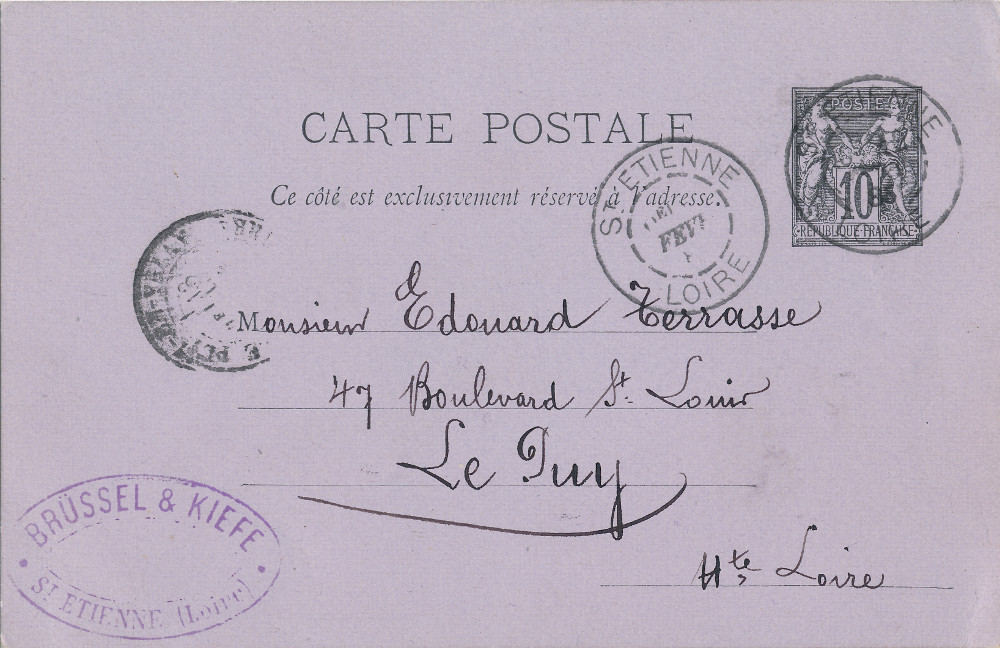 CARTE POSTALE
Ce côté est exclusivement réservé à l'adresse.
POSTE
10
RÉPUBLIQUE FRANÇAISE
ST ETIENNE
LOIRE
ST ETIENNE
FEVR
LOIRE
Monsieur Edouard Terrasse
47 Boulevard St. Louis
Le Puy
Hte Loire
BRÜSSEL & KIEFE
ST ETIENNE (Loire)